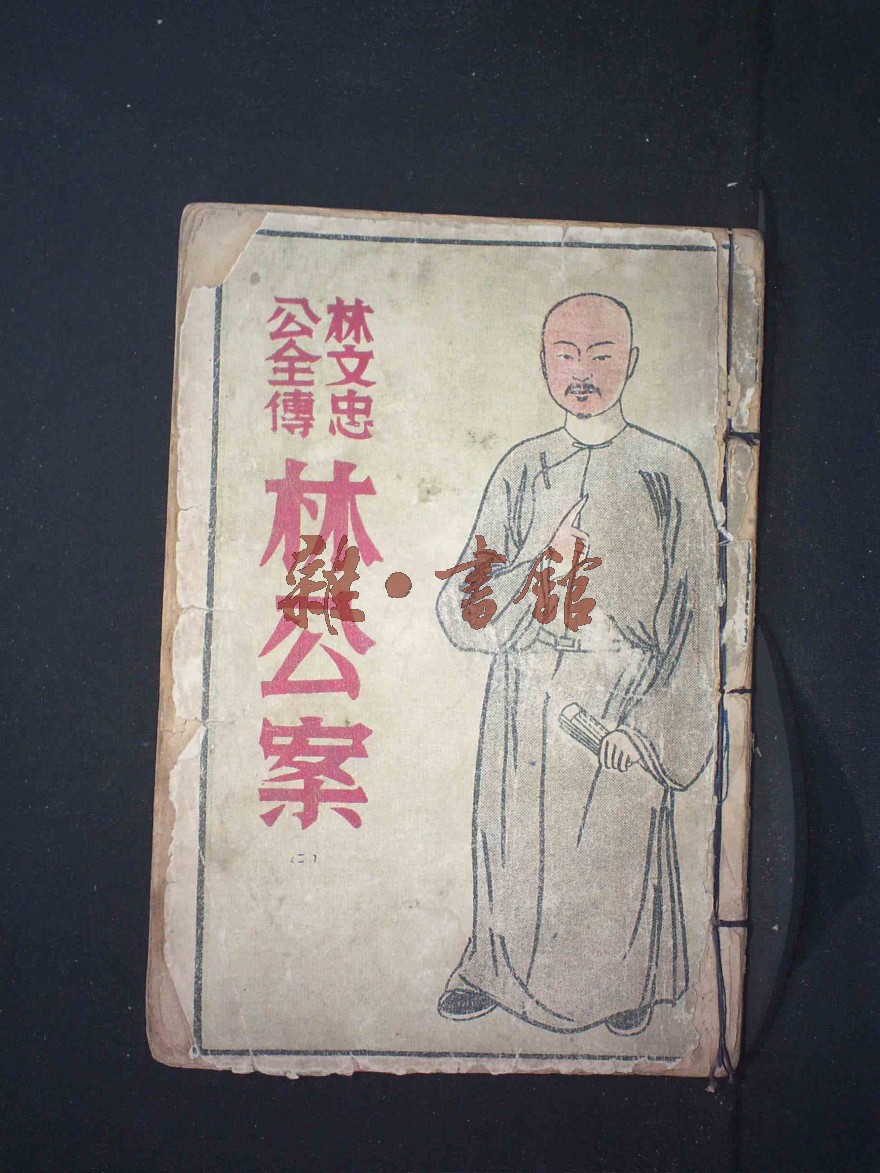 林文忠
公全傳
林公案
(二)
雜·書館